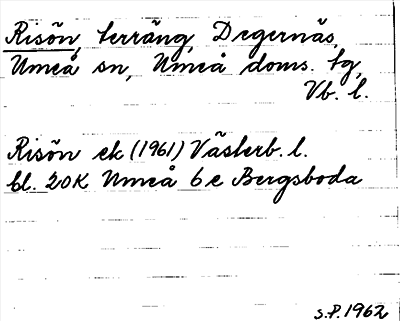 Risön, terräng, Degernäs,
Umeå sn, Umeå doms. tg,
Vb. l.
Risön ek (1961) Västerb. l.
bl. 20K Umeå 6e Bergsboda
S.P. 1962